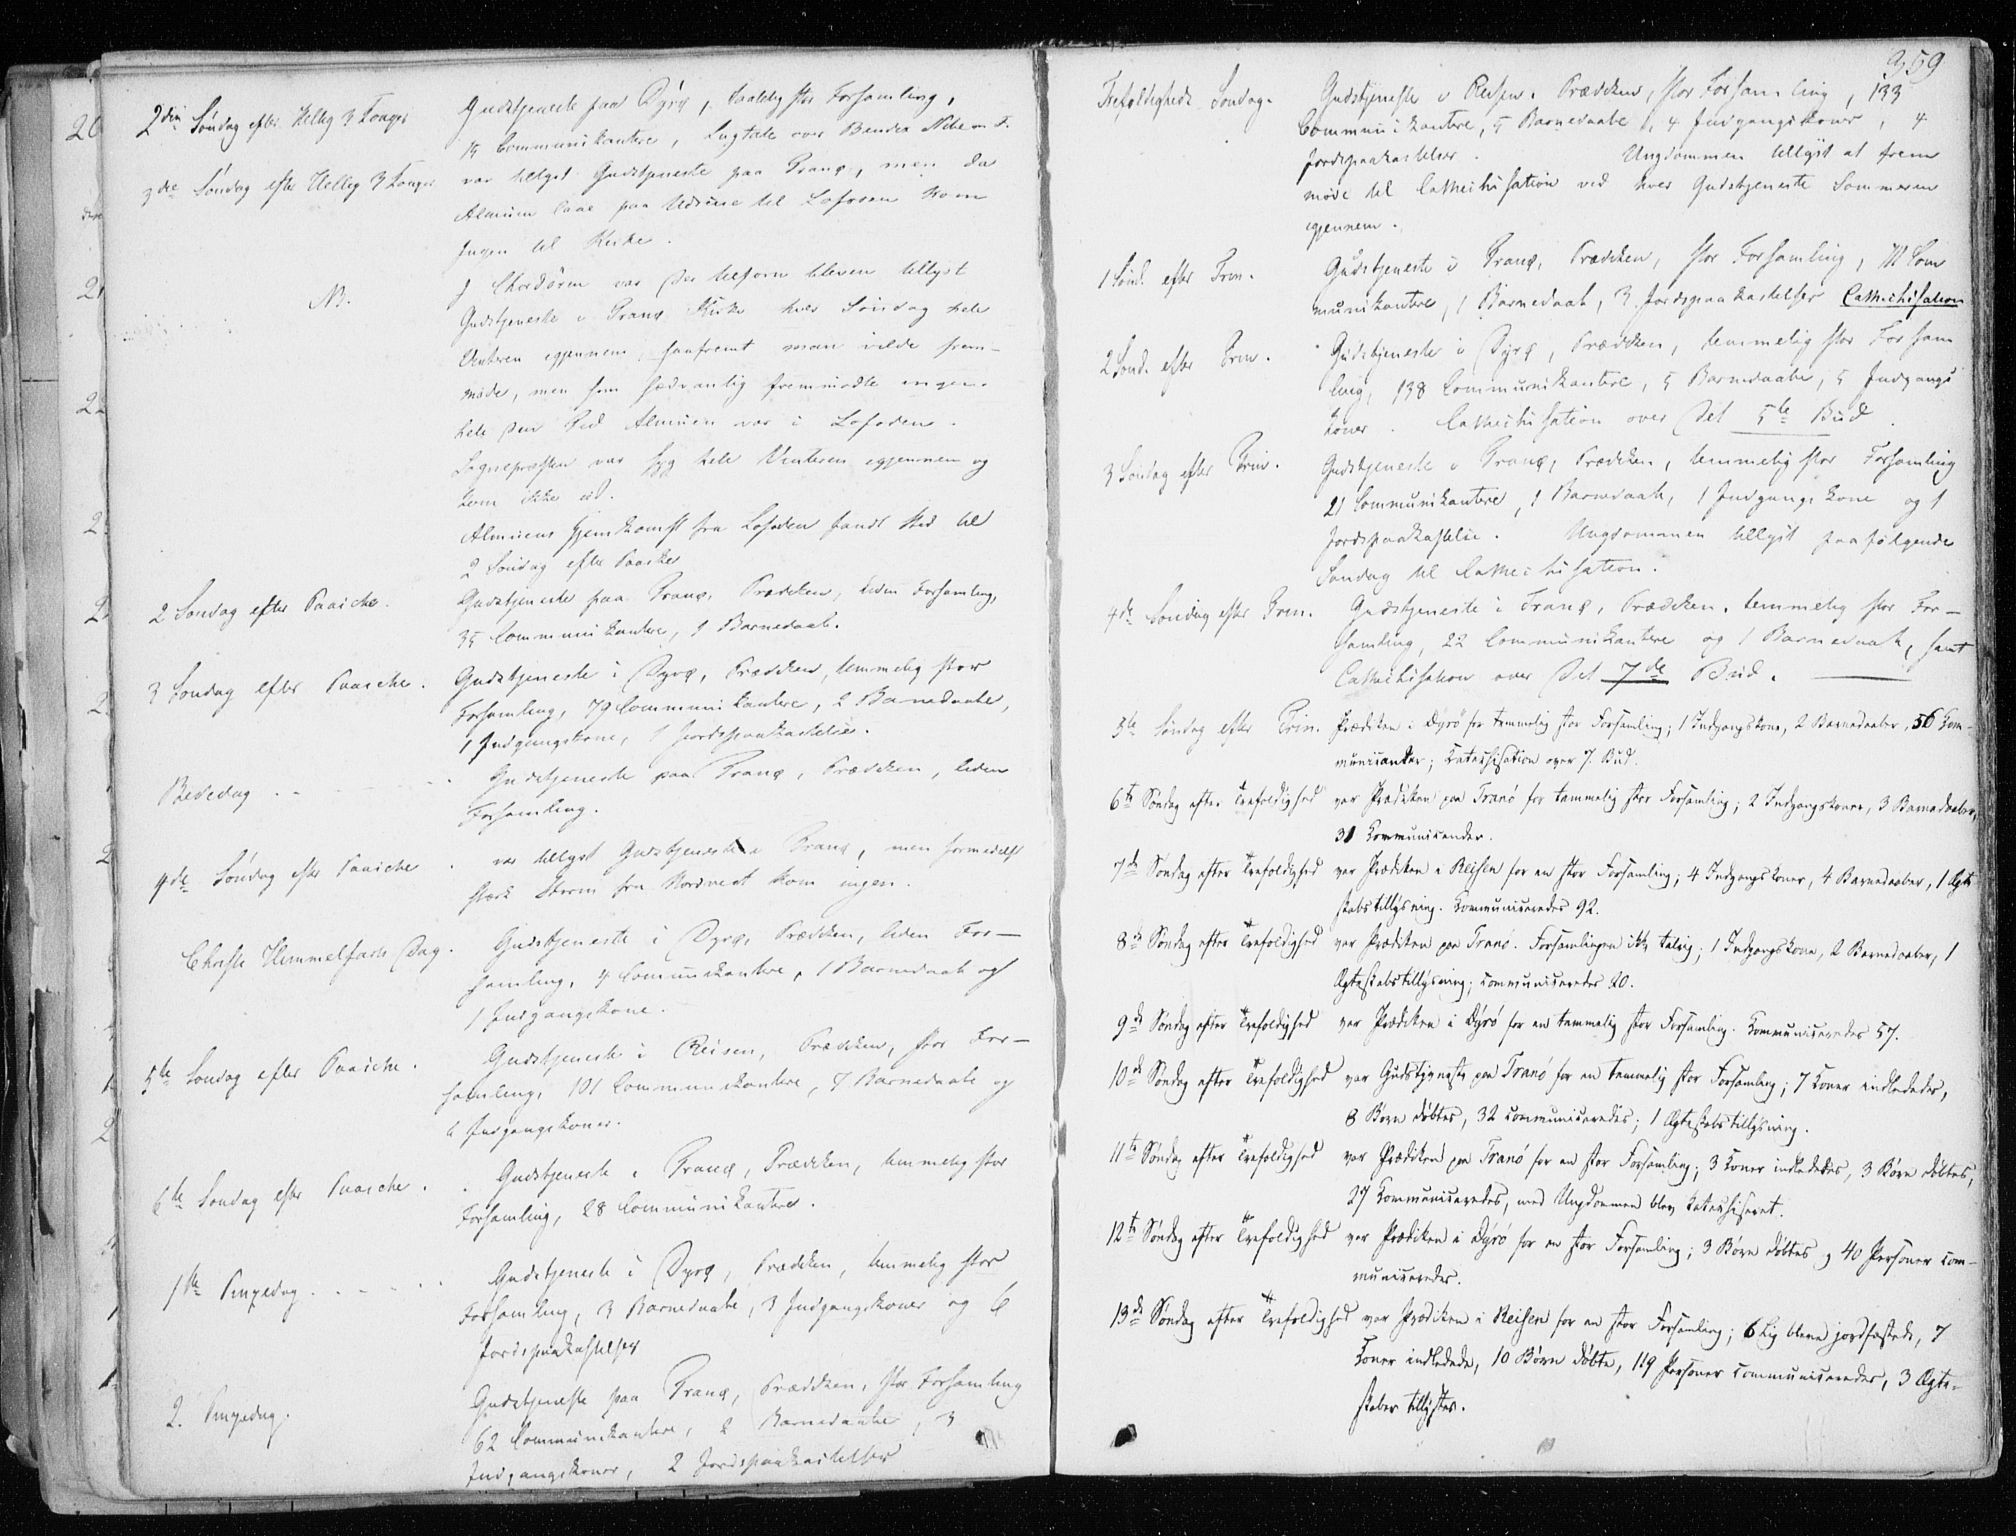 2den Søndag efter Hellig 3 Konger Gudstjeneste paa Dyrø, taalelig stor Forsamling,
15 Communikantere,
3die Søndag efter Hellig 3 Konger var tillyst Gudstjeneste paa Tranø, men da
Almuen laae paa Udreise til Lofoden kom
Ingen til Kirke.
NB. I Chordøren var der tilforn bleven tillyst
Gudstjeneste i Tranø Kirke hver Søndag hele
Vinteren igjennem, saafremt man vilde frem-
møde, men som sædvanlig fremmødte ingen
hele den Tid Almuen var i Lofoden.
Sognepræsten var syg hele Vinteren igjennem og
kom ikke ud.
Almuens Hjemkomst fra Lofoden fandt sted til
2 Søndag efter Paaske
2 Søndag efter Paaske. Gudstjeneste paa Tranø, Prædiken, liden Forsamling,
35 Communikantere, 1 Barnedaab.
3 Søndag efter Paaske. Gudstjeneste i Dyrø, Prædiken, temmelig stor
Forsamling, 79 Communikantere, 2 Barnedaabe,
1 Indgangskone, 1 Jordspaakastelse.
Bededag Gudstjeneste paa Tranø, Prædiken, liden
Forsamling.
4de Søndag efter Paaske. var tillyst Gudstjeneste i Tranø, men formedelst
stærk Storm fra Nordvest kom ingen.
Christi Himmelfarts Dag. Gudstjeneste i Dyrø, Prædiken, liden For-
samling, 4 Communikantere, 1 Barnedaab og
1 Indgangskone.
5te Søndag efter Paaske. Gudstjeneste i Reisen, Prædiken, stor For-
samling, 101 Communikantere, 7 Barnedaabe og
6 Indgangskoner.
6te Søndag efter Paaske. Gudstjeneste i Tranø, Prædiken, temmelig stor
Forsamling, 28 Communikantere.
1ste Pinzedag Gudstjeneste i Dyrø, Prædiken, temmelig stor
Forsamling, 3 Barnedaabe, 3 Indgangskoner og 6
Jordspaakastelser
2. Pinzedag. Gudstjeneste paa Tranø, Prædiken, stor Forsamling
62 Communikantere, 2 Barnedaabe, 3
Indgangskoner, 2 Jordspaakastelser
359
Trefoldigheds Søndag. Gudstjeneste i Reisen. Prædiken, stor Forsamling, 133
Communikantere, 5 Barnedaabe, 4 Indgangskoner, 4
Jordspaakastelser. Ungdommen tillyst at frem
møde til Cathechisation ved hver Gudstjeneste Sommeren
igjennem.
1 Sønd. efter Trin. Gudstjeneste i Tranø, Prædiken, stor Forsamling, 111 Com
munikantere, 1 Barnedaab, 3 Jordspaakastelser Cathechisation
2 Sønd. efter Trin. Gudstjeneste i Dyrø, Prædiken, temmelig stor Forsam
ling, 138 Communikantere, 5 Barnedaabe, 5 Indgangs
koner. Cathechisation over det 5te Bud.
3 Søndag efter Trin. Gudstjeneste i Tranø, Prædiken, temmelig stor Forsamling
21 Communikantere, 1 Barnedaab, 1 Indgangskone og 1
Jordspaakastelse. Ungdommen tillyst paafølgende
Søndag til Cathechisation.
4de Søndag efter Trin. Gudstjeneste i Tranø, Prædiken, temmelig stor For-
samling, 22 Communikantere og 1 Barnedaab, samt
Cathechisation over det 7de Bud.
5te Søndag efter Trin. Prædiken i Dyrø for temmelig stor Forsamling; 1 Indgangskone, 2 Barnedaaber, 56 Kom-
municanter; Katechisation over 7. Bud.
6te Søndag efter Trefoldighed var Prædiken paa Tranø for temmelig stor Forsamling; 2 Indgangskoner, 3 Barnedaaber,
31 Kommunicander.
7de Søndag efter Trefoldighed var Prædiken i Reisen for en stor Forsamling; 4 Indgangskoner, 4 Barnedaaber, 1 Ægte
skabstillysning. Kommuniceredes 92.
8de Søndag efter Trefoldighed var Prædiken paa Tranø. Forsamlingen ikke talrig; 1 Indgangskone, 2 Barnedaaber, 1
Ægteskabstillysning; communiceredes 20.
9de Søndag efter Trefoldighed var Prædiken i Dyrø for en temmelig stor Forsamling. Kommuniceredes 57.
10de Søndag efter Trefoldighed var Gudstjeneste paa Tranø for en temmelig stor Forsamling; 7 Koner indlededes,
8 Børn døbtes, 32 communiceredes; 1 Ægteskabstillysning.
11te Søndag efter Trefoldighed var Prædiken paa Tranø for en stor Forsamling; 3 Koner indlededes, 3 Børn døbtes,
27 Kommuniceredes, med Ungdommen blev katechiseret.
12te Søndag efter Trefoldighed var Prædiken i Dyrø for en stor Forsamling; 3 Børn døbtes og 40 Personer com-
municeredes.
13de Søndag efter Trefoldighed var Prædiken i Reisen for en stor Forsamling; 6 Lig bleve jordfæstede, 7
Koner indledede, 10 Børn døbte, 119 Personer communiceredes, 3 Ægte-
skaber tillystes.